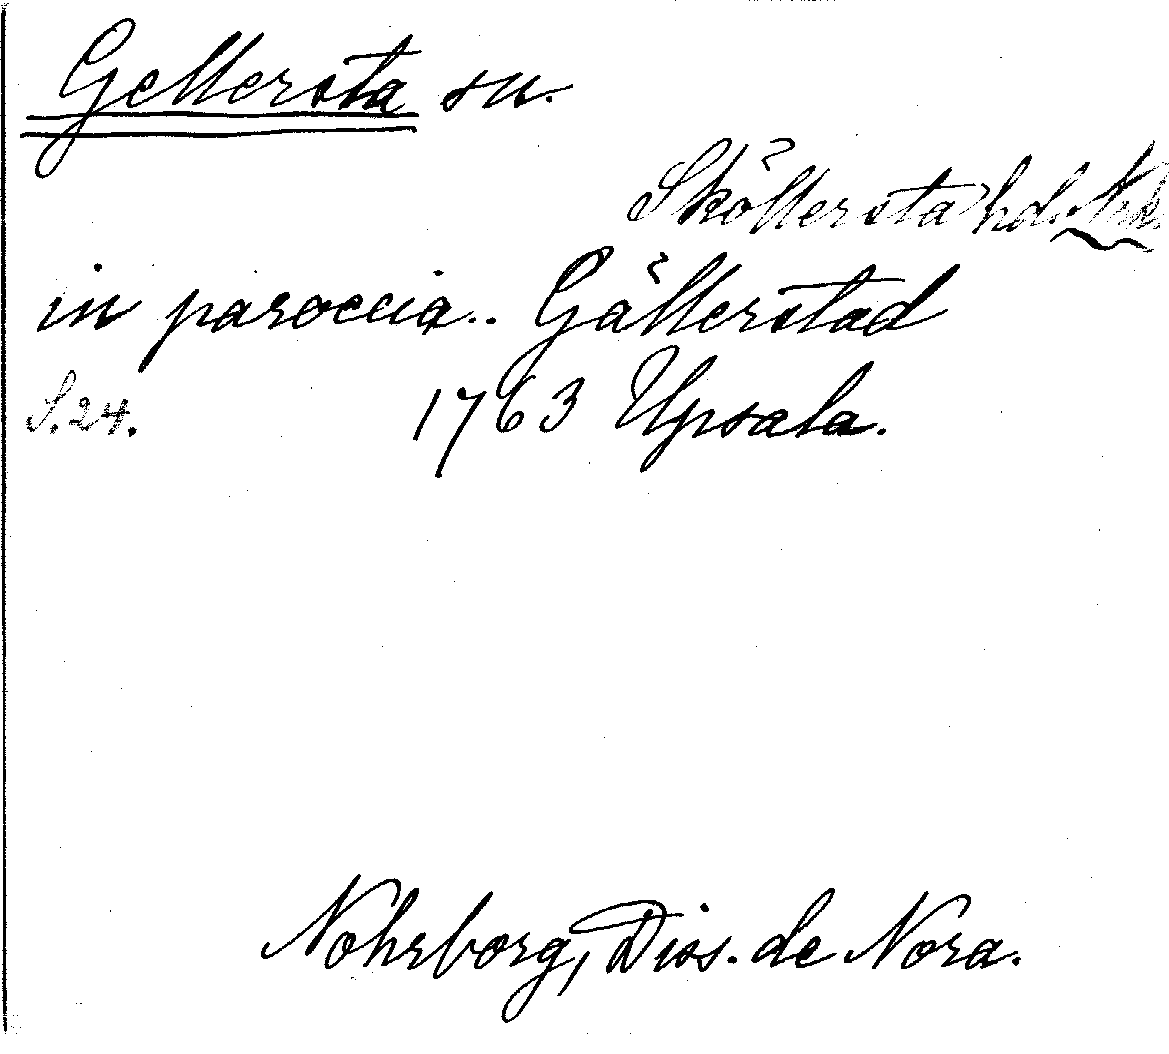 Gellersta sn.
Sköllersta hd. Nrk.
in paroccia.. Gällerstad
S. 24. 1763 Upsala.
Nohrborg, Diss. de Nora.